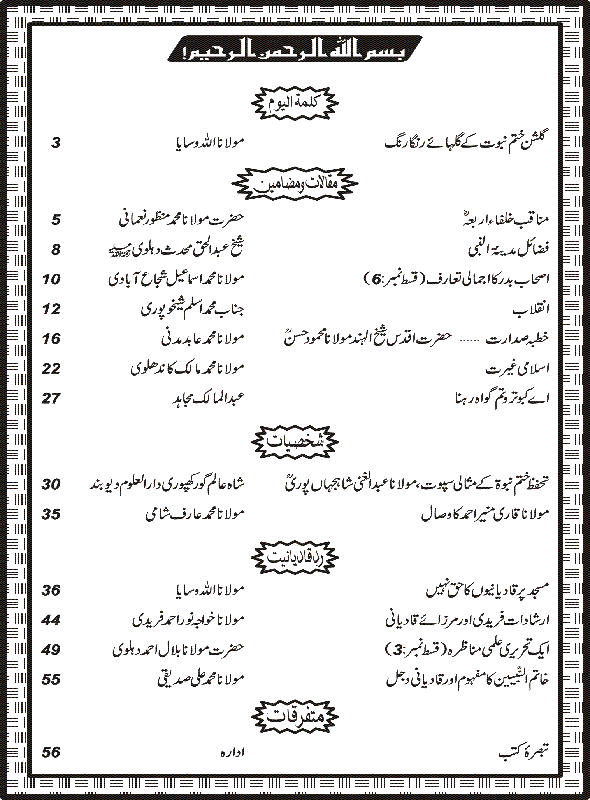 بسم الله الرحمن الرحیم!
کلمۃ الیوم
گلشن ختم نبوت کے گلہائے رنگارنگ مولانا اللہ وسایا 3
مقالات و مضامین
مناقب خلفاء اربعہؓ حضرت مولانا محمد منظور نعمانی 5
فضائل مدینۃ النبی شیخ عبدالحق محدث دہلوی 8
اصحاب بدر کا اجمالی تعارف (قسط نمبر:6) مولانا محمد اسماعیل شجاع آبادی 10
انقلاب جناب محمد اسلم شیخوپوری 12
خطبہ صدارت ...... حضرت اقدس شیخ الہند مولانا محمود حسنؒ مولانا محمد عابد مدنی 16
اسلامی غیرت مولانا محمد مالک کاندھلوی 22
اے کبوترو تم گواہ رہنا عبدالمالک مجاہد 27
شخصیات
تحفظ ختم نبوۃ کے مثالی سپوت، مولانا عبدالغنی شاہجہاں پوریؒ شاہ عالم گورکھپوری دارالعلوم دیوبند 30
مولانا قاری منیر احمد کا وصال مولانا محمد عارف شامی 35
رد قادیانیت
مسجد پر قادیانیوں کا حق نہیں مولانا اللہ وسایا 36
ارشادات فریدی اور مرزائے قادیانی مولانا خواجہ نور احمد فریدی 44
ایک تحریری علمی مناظرہ (قسط نمبر:3) حضرت مولانا بلال احمد دہلوی 49
خاتم النّبیین کا مفہوم اور قادیانی دجل مولانا محمد علی صدیقی 55
متفرقات
تبصرۂ کتب ادارہ 56